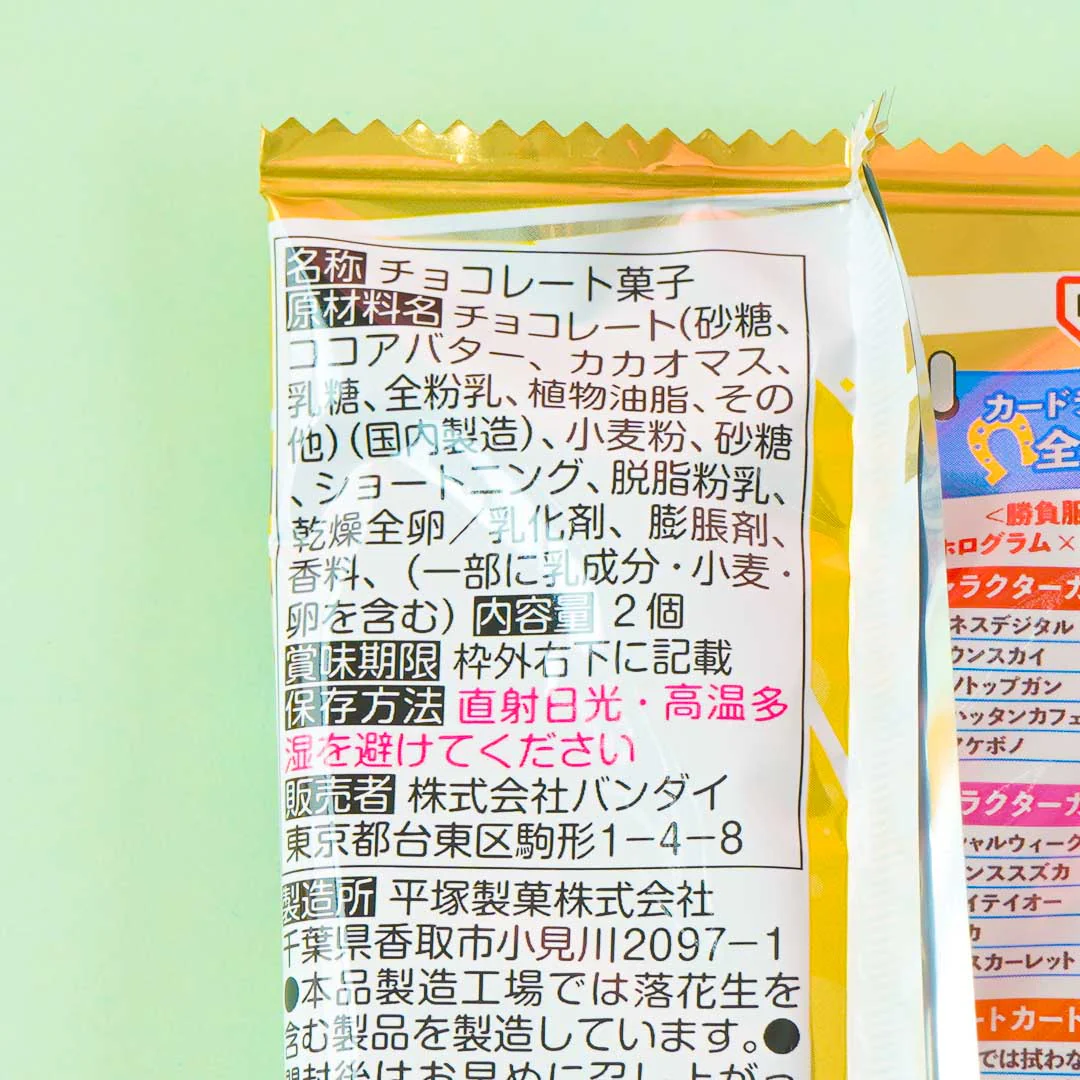 名称 チョコレート菓子
原材料名 チョコレート(砂糖、
ココアバター、カカオマス、
乳糖、全粉乳、植物油脂、その
他)(国内製造)、小麦粉、砂糖
、ショートニング、脱脂粉乳、
乾燥全卵／乳化剤、膨脹剤、
香料、(一部に乳成分・小麦・
卵を含む) 内容量 2個
賞味期限 枠外右下に記載
保存方法 直射日光・高温多
湿を避けてください
販売者 株式会社バンダイ
東京都台東区駒形1-4-8
製造所 平塚製菓株式会社
千葉県香取市小見川2097-1
●本品製造工場では落花生を
含む製品を製造しています。●
開封後はお早めに召し上がっ
カード
全
<勝負服
ホログラム×
ラクターカ
ネスデジタル
ウンスカイ
トップガン
ハッタンカフェ
アケボノ
ラクターカ
シャルウィーク
ンススズカ
イテイオー
カ
スカーレット
ートカード
では拭わな